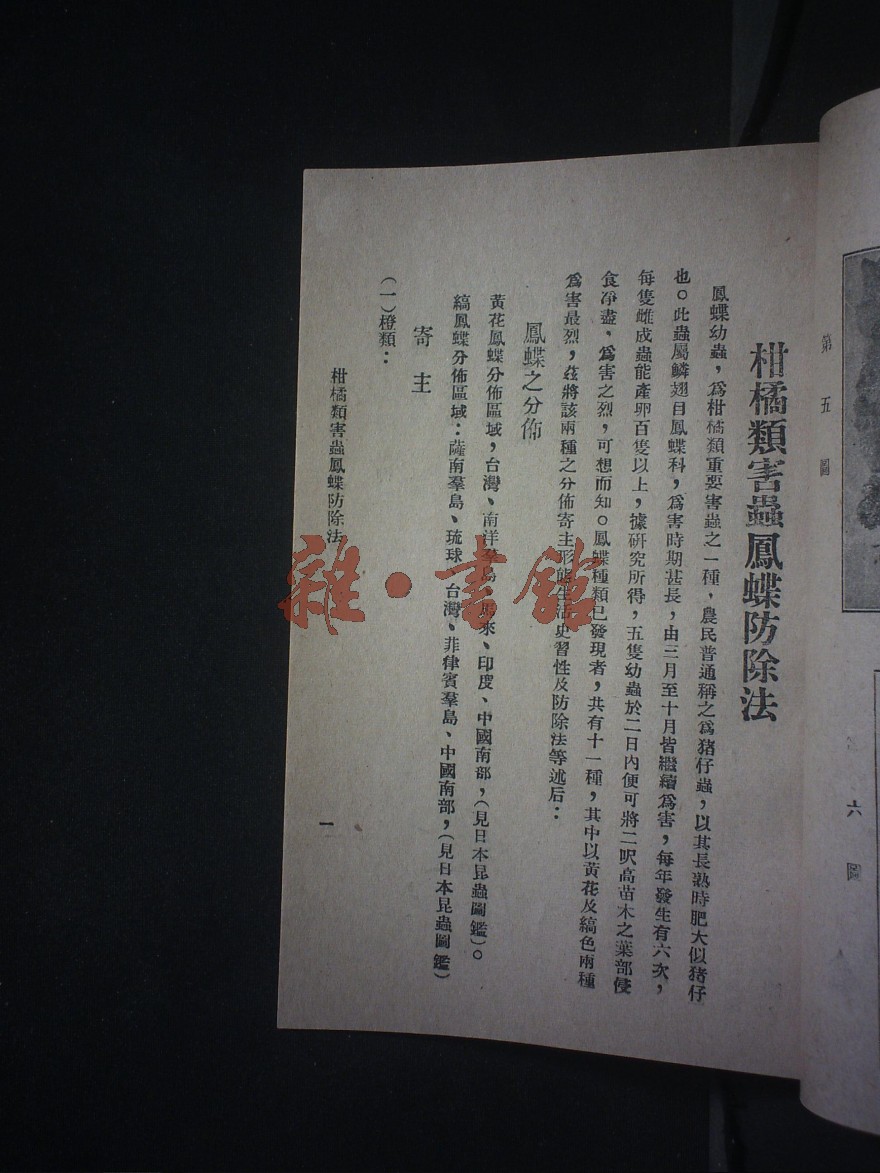 柑橘類害蟲鳳蝶防除法
鳳蝶幼蟲，爲柑橘類重要害蟲之一種，農民普通稱之爲猪仔蟲，以其長熟時肥大似猪仔
也。此蟲屬鱗翅目鳳蝶科，爲害時期甚長，由三月至十月皆繼續爲害，每年發生有六次，
每隻雌成蟲能產卵百隻以上，據研究所得，五隻幼蟲於二日內便可將二呎高苗木之葉部侵
食净盡、爲害之烈，可想而知。鳳蝶種類已發現者，共有十一種，其中以黃花及縞色兩種
爲害最烈，茲將該兩種之分佈寄主形態生活史習性及防除法等述后：
鳳蝶之分佈
黃花鳳蝶分佈區域，台灣、南洋羣島、來、印度、中國南部，（見日本昆蟲圖鑑）。
縞鳳蝶分佈區域：薩南羣島、琉球、台灣、菲律賓羣島、中國南部，（見日本昆蟲圖鑑）
寄主
（一）橙類：
柑橘類害蟲鳳蝶防除法
一
第五圖
六圖
雜·書館